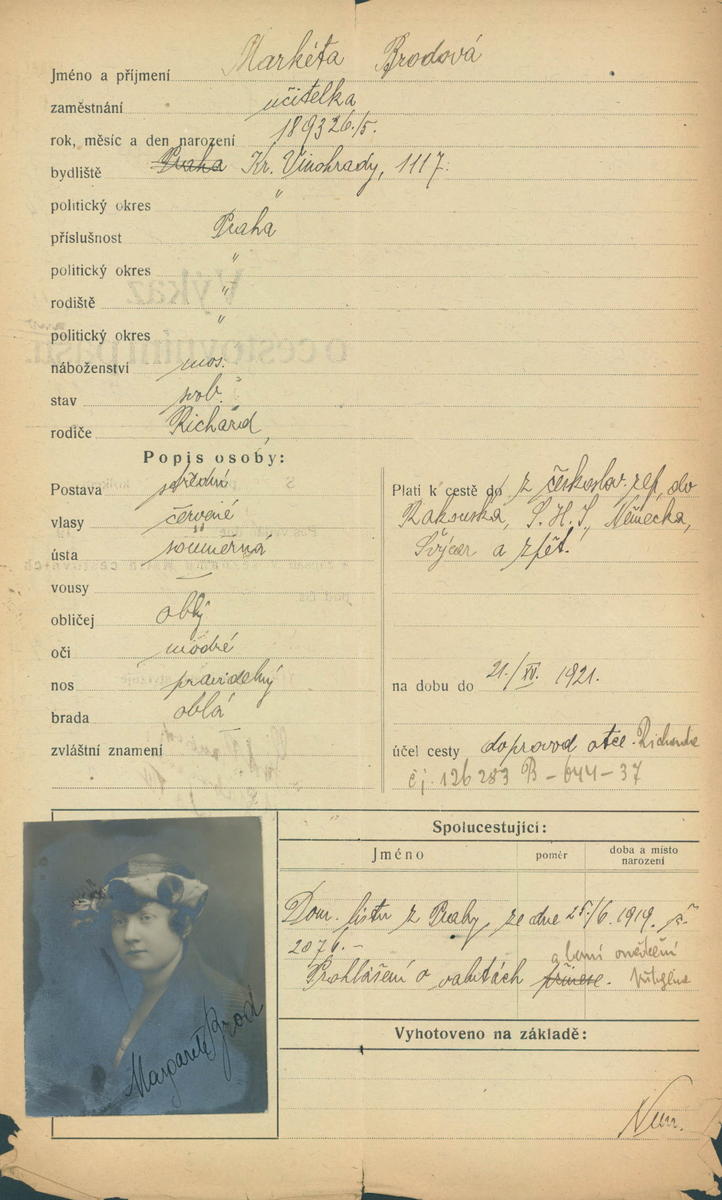 Jméno a příjmení Markéta Brodová
zaměstnání učitelka
rok, měsíc a den narození 1893 26./5.
bydliště Praha Kr. Vinohrady, 1117.
politický okres "
příslušnost Praha
politický okres "
rodiště "
politický okres "
náboženství mos.
stav svob.
rodiče Richard,
Popis osoby:
Postava střední
vlasy červené
ústa souměrná
vousy —
obličej oblý
oči modré
nos pravidelný
brada oblá
zvláštní znamení
Platí k cestě do z českoslov. rep. do
Rakouska, S.H.S., Německa,
Švýcar a zpět.
na dobu do 21./IV. 1921.
účel cesty doprovod otce Richarda
čj. 126283 B-644-37
Spolucestující:
Jméno poměr doba a místo
narození
Dom. listu z Prahy, ze dne 25./6. 1919. č.
2076.-
Prohlášení o valutách přinese.
Vyhotoveno na základě:
Margarete Brod
Výkaz
o cestovním pasu